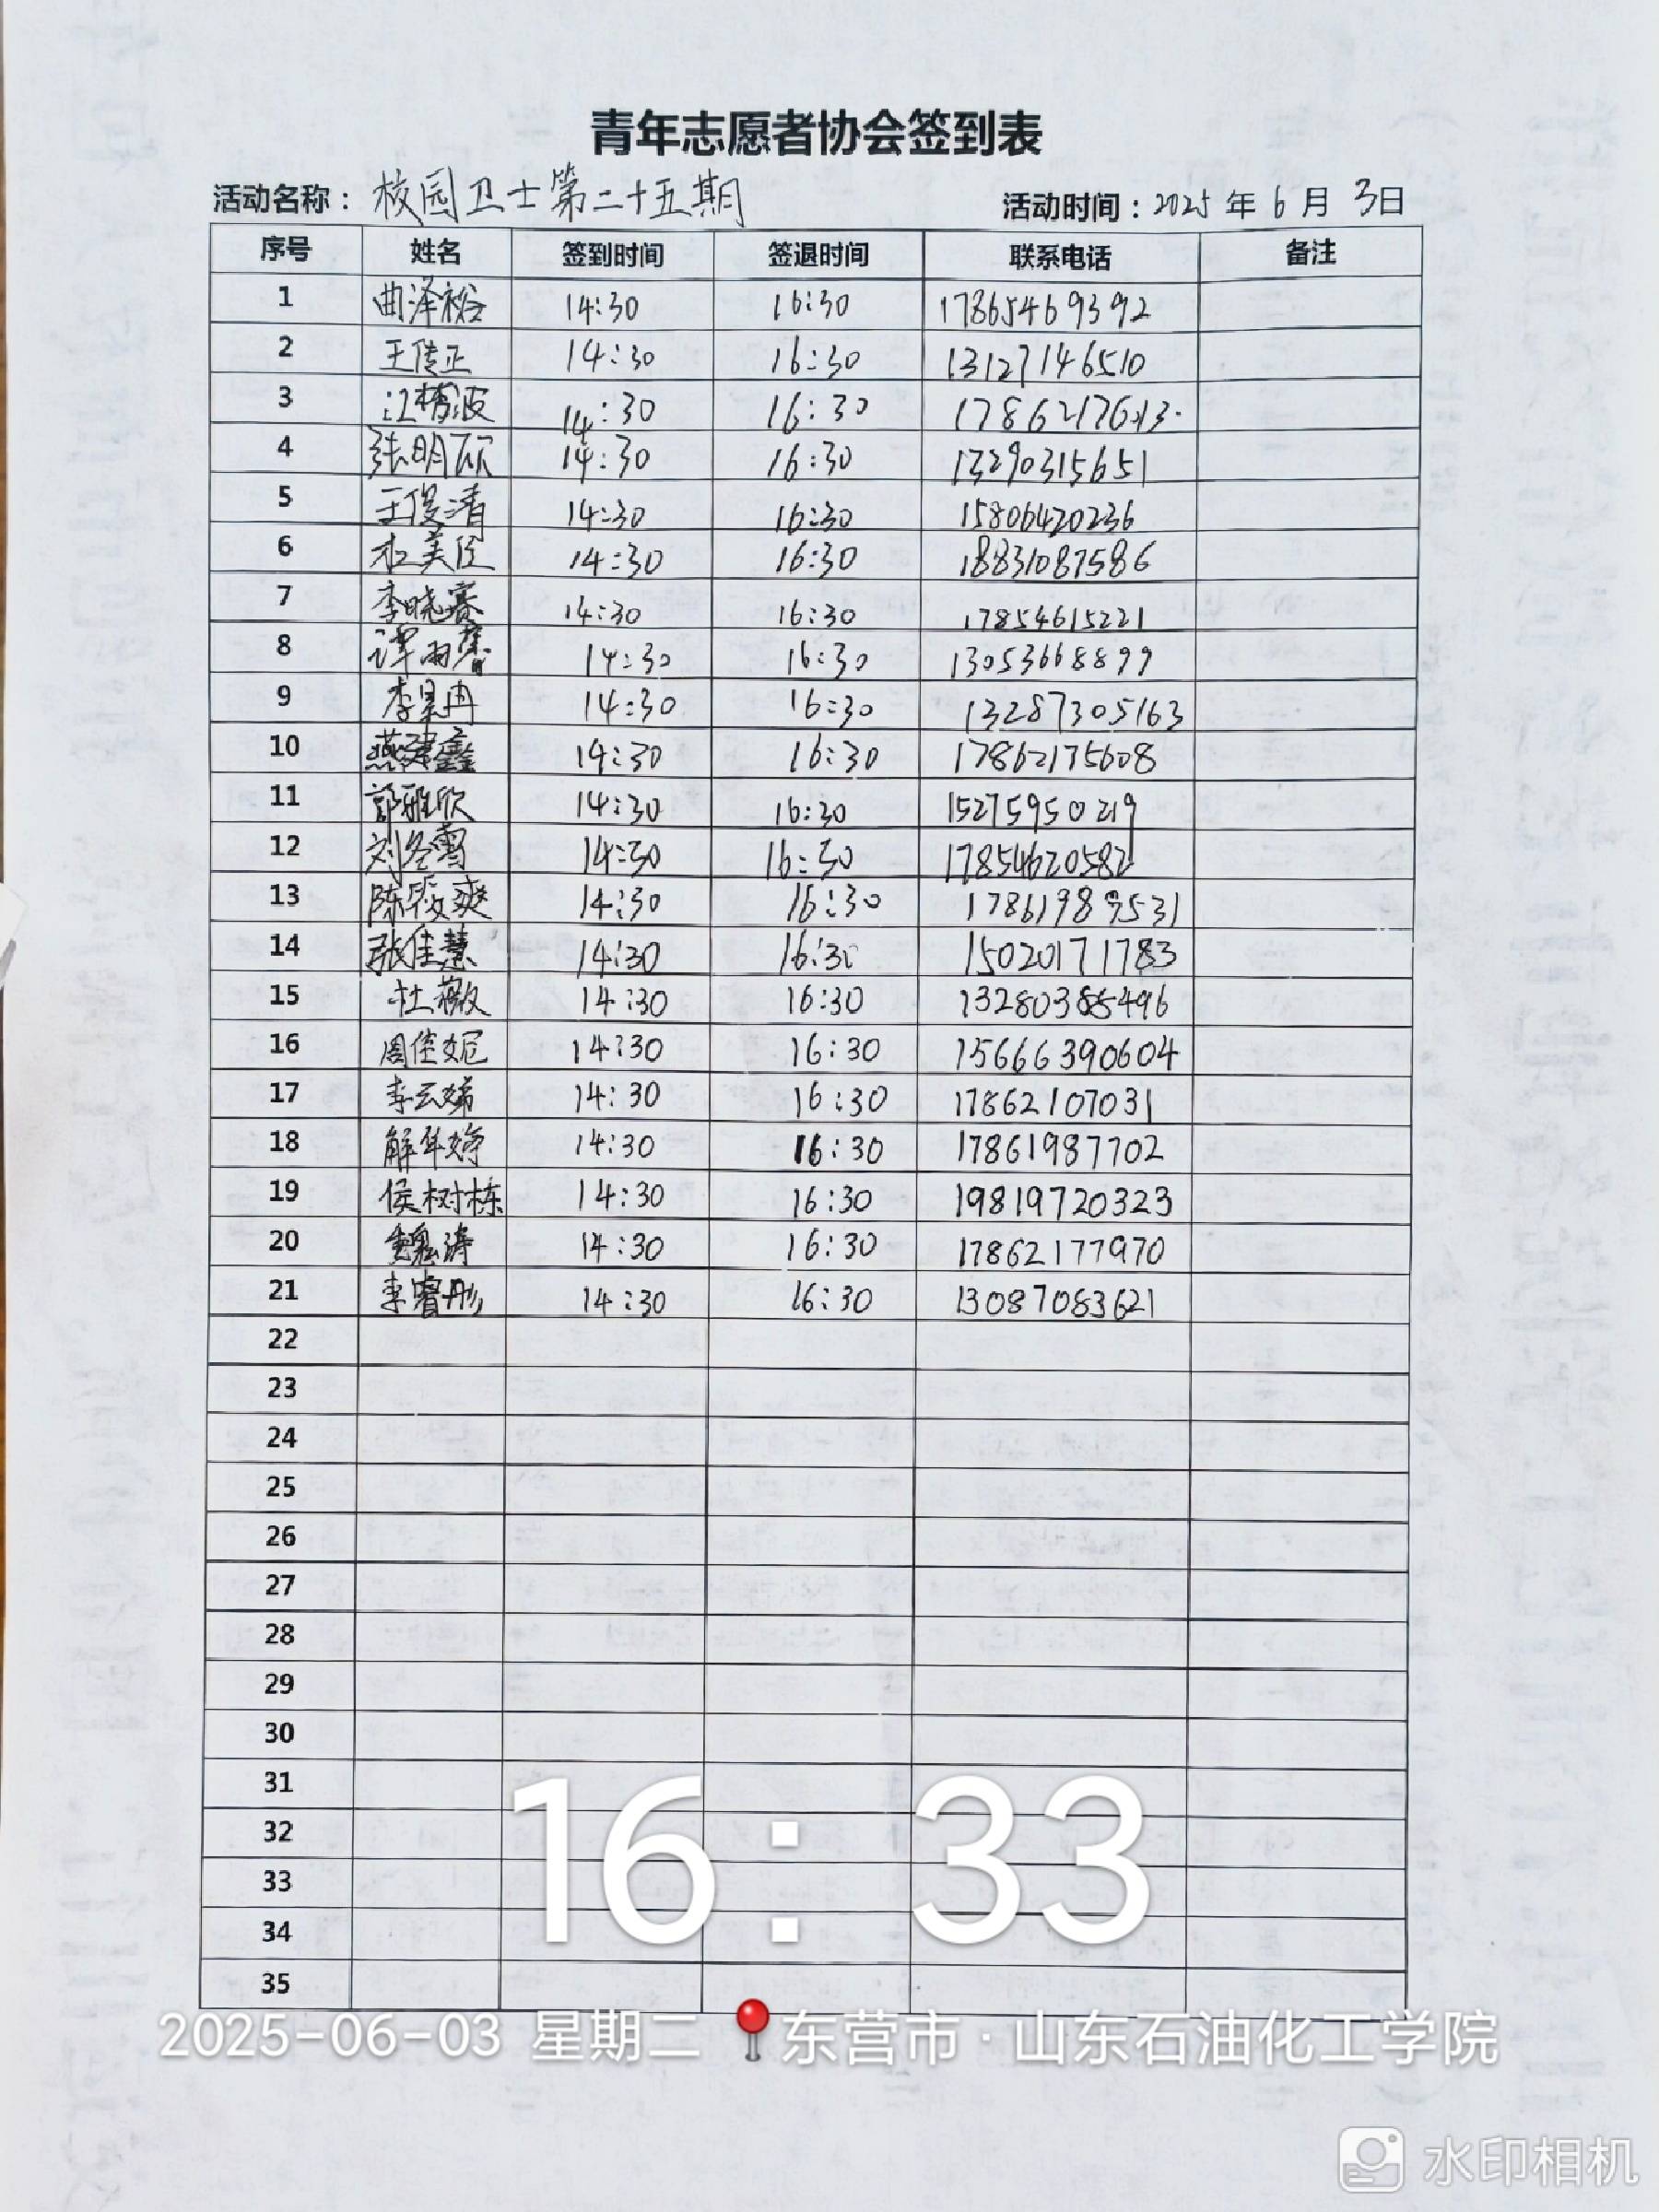 青年志愿者协会签到表
活动名称：校园卫士第二十五期 活动时间：2025年6月3日
序号 姓名 签到时间 签退时间 联系电话 备注
1 曲泽裕 14:30 16:30 17865469392
2 王传正 14:30 16:30 13127146510
3 14:30 16:30
4 张明硕 14:30 16:30 13290315651
5 王俊清 14:30 16:30 15806420236
6 杜美臣 14:30 16:30 18831087586
7 李晓赛 14:30 16:30 17854615221
8 14:30 16:30 13053668899
9 李昊冉 14:30 16:30 13287305163
10 14:30 16:30 17862175608
11 郭雅欣 14:30 16:30 15275950219
12 刘冬雪 14:30 16:30 17854620582
13 陈筱爽 14:30 16:30 17861989531
14 张佳慧 14:30 16:30 15020171783
15 杜薇 14:30 16:30 13280385496
16 周佳妮 14:30 16:30 15666390604
17 李云娣 14:30 16:30 17862107031
18 解年婷 14:30 16:30 17861987702
19 侯树栋 14:30 16:30 19819720323
20 魏涛 14:30 16:30 17862177970
21 李睿彤 14:30 16:30 13087083621
22
23
24
25
26
27
28
29
30
31
32
33
34
35
16:33
2025-06-03 星期二 东营市·山东石油化工学院
水印相机